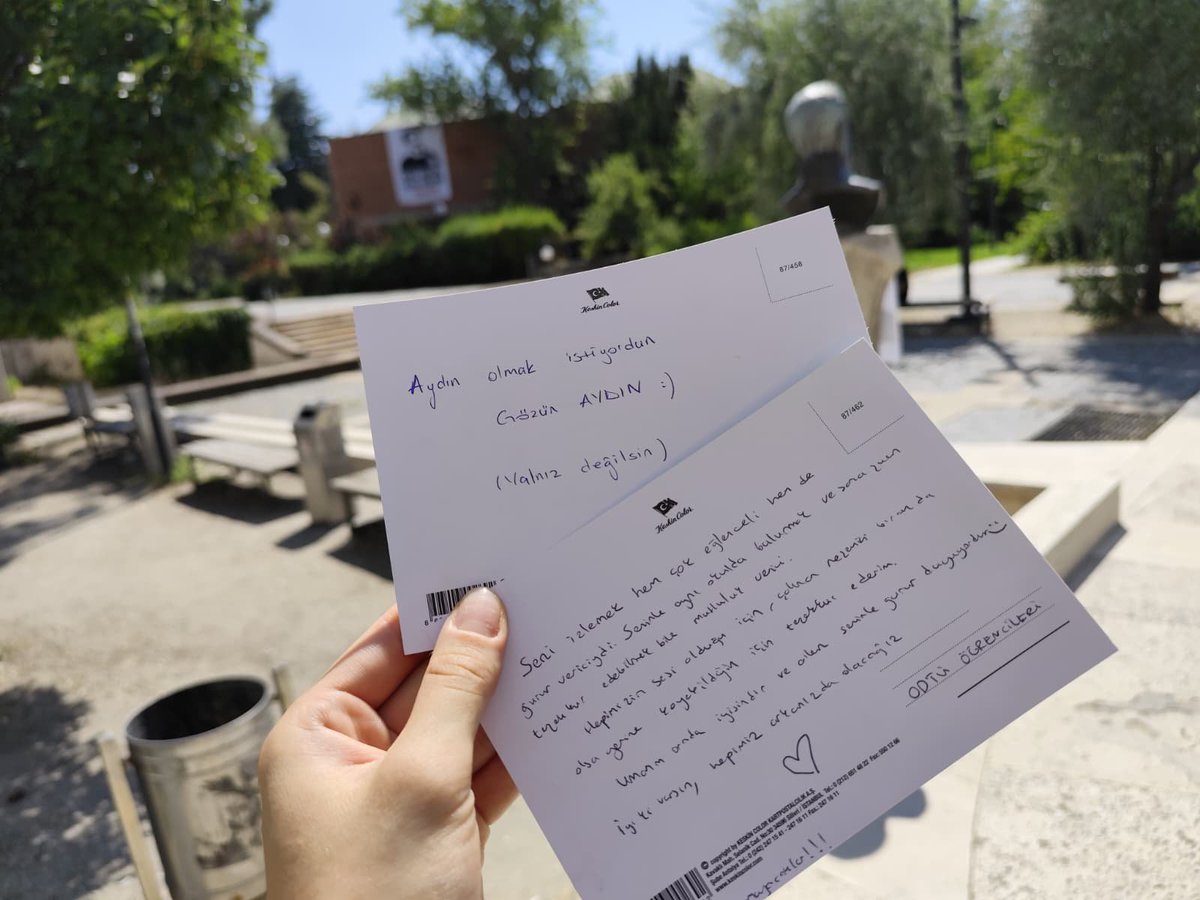 87/458
Keskin Color
Aydın olmak istiyordun
Gözün AYDIN :)
(Yalnız değilsin)
87/462
Keskin Color
Seni izlemek hem çok eğlenceli hem de
gurur vericiydi. Seninle aynı okulda bulunmak ve sana zum
teşekkür edebilmek bile mutluluk verici.
Hepimizin sesi olduğun için, çalınan nezemizi bir an da
olsa yerine koyabildiğin için teşekkür ederim.
Umarım orada iyisindir ve orlen seninle gurur duyuyordun
İyi ki varsın, hepimiz arkanızda olacağız
ODTÜ ÖĞRENCİLERİ
© copyright by KESKİN COLOR KARTPOSTALCILIK A.Ş.
www.keskicolor.com